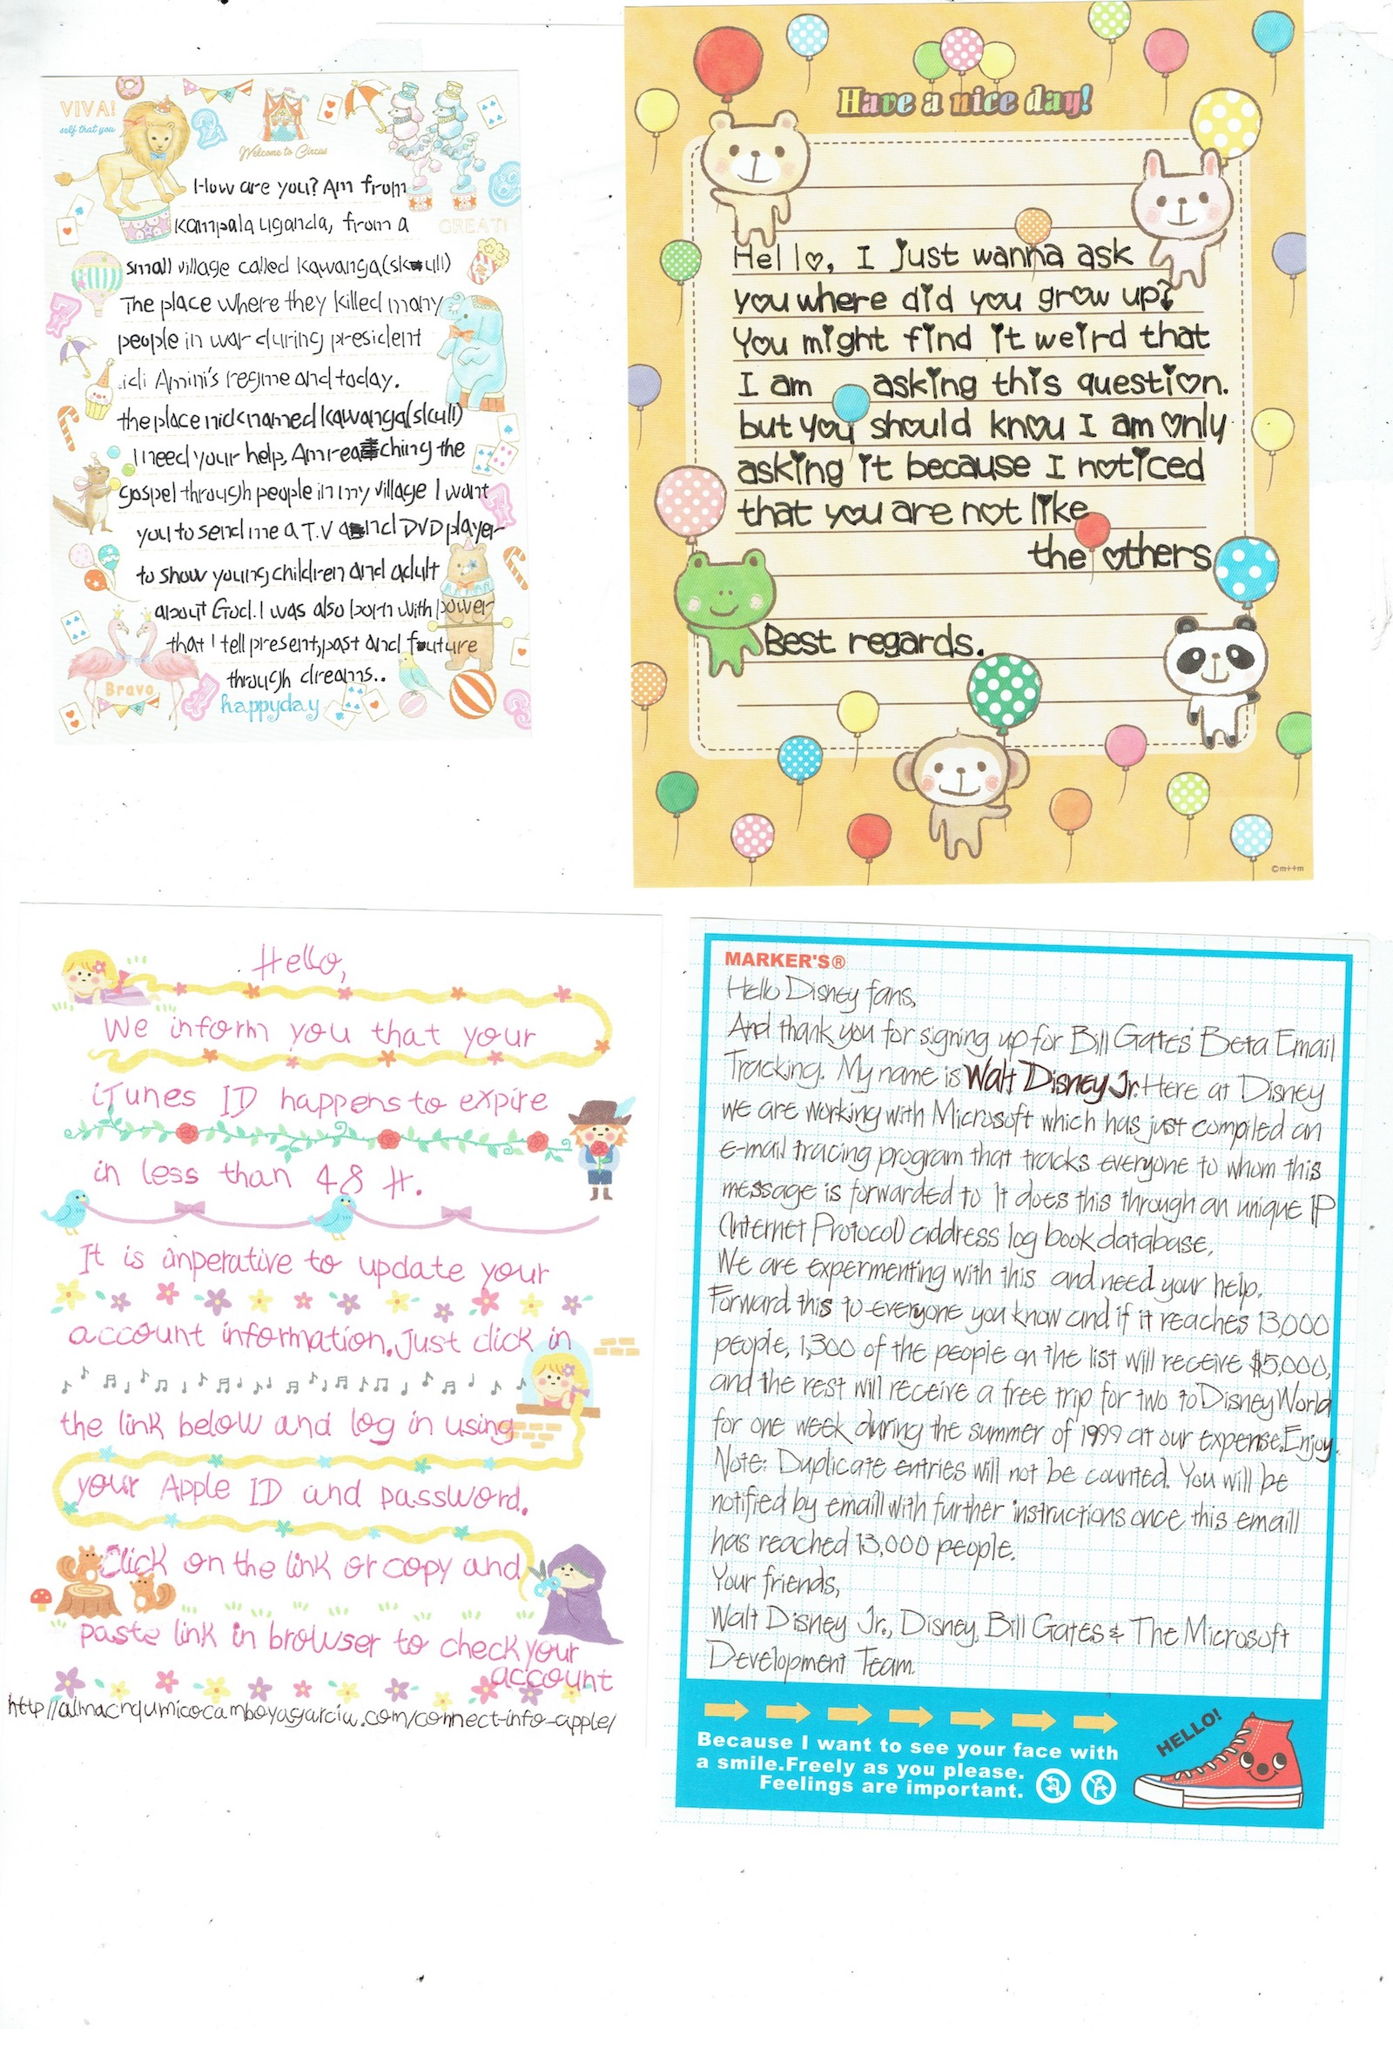 VIVA!
self that you
Welcome to Circus
GREAT!
How are you? Am from
Kampala uganda, from a
small village called Kawanga(skull)
The place where they killed many
people in war during president
idi Amini's regime and today.
the place nicknamed Kawanga(skull)
I need your help, Am reaching the
gospel through people in my village I want
you to send me a T.V and DVD player
to show young children and adult
about God. I was also born with power
that I tell present,past and future
through dreams..
Bravo
happyday
Have a nice day!
Hello, I just wanna ask
you where did you grow up?
You might find it weird that
I am asking this question.
but you should know I am only
asking it because I noticed
that you are not like
the others
Best regards.
©m++m
Hello,
We inform you that your
iTunes ID happens to expire
in less than 48 H.
It is inperative to update your
account information. Just click in
the link below and log in using
your Apple ID and password.
Click on the link or copy and
paste link in browser to check your
account
MARKER'S®
Hello Disney fans,
And thank you for signing up for Bill Gates' Beta Email
Tracking. My name is Walt Disney Jr. Here at Disney
we are working with Microsoft which has just compiled an
e-mail tracing program that tracks everyone to whom this
message is forwarded to It does this through an unique IP
(Internet Protocol) address log book database.
We are expermenting with this and need your help.
Forward this to everyone you know and if it reaches 13,000
people, 1,300 of the people on the list will receive $5,000,
and the rest will receive a free trip for two to Disney World
for one week during the summer of 1999 at our expense. Enjoy.
Note: Duplicate entries will not be counted. You will be
notified by emaill with further instructions once this emaill
has reached 13,000 people.
Your friends,
Walt Disney Jr., Disney, Bill Gates & The Microsoft
Development Team.
HELLO!
Because I want to see your face with
a smile.Freely as you please.
Feelings are important.